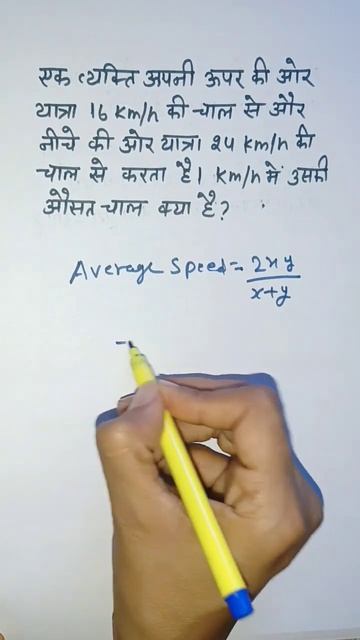 एक व्यक्ति अपनी ऊपर की ओर
यात्रा 16 km/h की चाल से और
नीचे की ओर यात्रा 24 km/h की
चाल से करता है। km/h में उसकी
औसत चाल क्या है?
Average Speed = 2xy
x+y